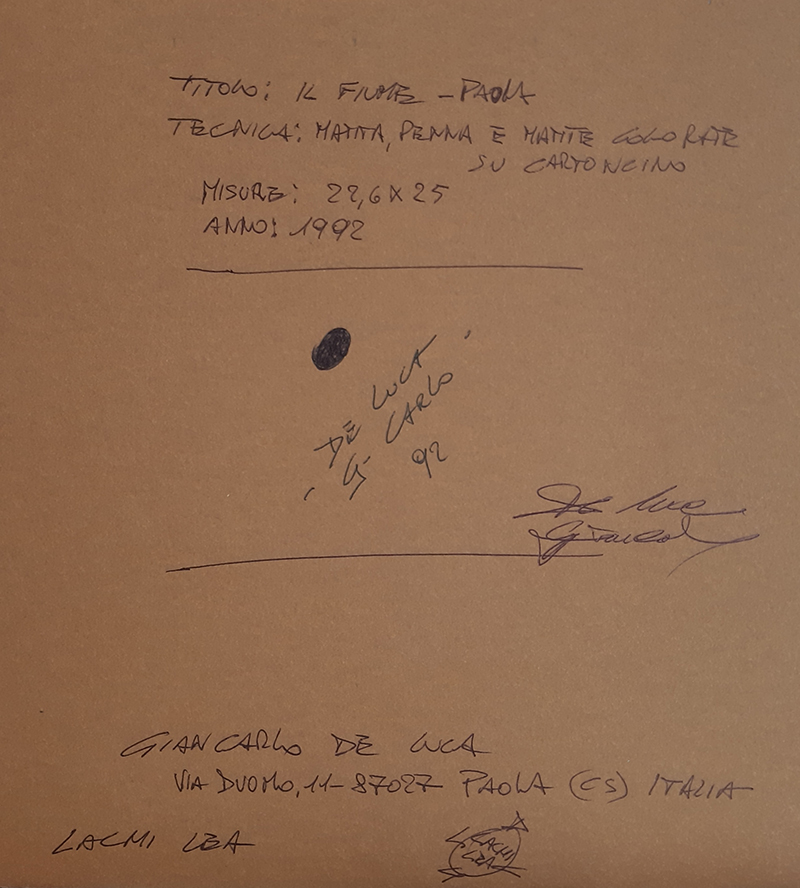 TITOLO: IL FIUME - PAOLA
TECNICA: MATITA, PENNA E MATITE COLORATE
SU CARTONCINO
MISURE: 22,6 X 25
ANNO: 1992
DE LUCA
G. CARLO
92
De Luca
Giancarlo
GIANCARLO DE LUCA
VIA DUOMO, 11 - 87027 PAOLA (CS) ITALIA
LACMI LEA
LACMI
LEA